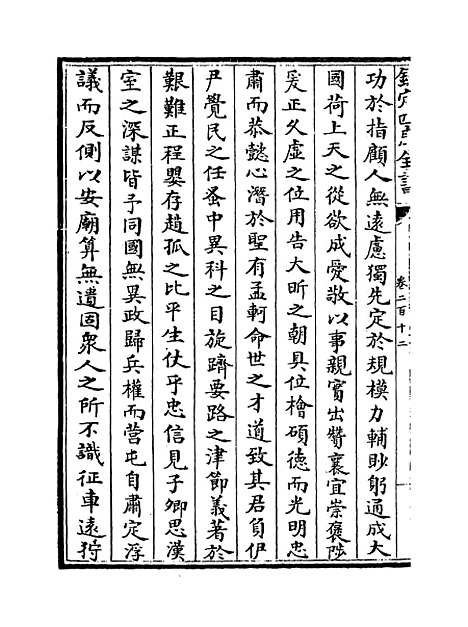 欽定四庫全書
卷二百十二
功於指顧人無遠慮獨先定於規模力輔眇躬通成大
國荷上天之從欲成愛敬以事親寔出贊襄宜崇褒陟
爰正久虛之位用告大昕之朝具位檜碩德而光明忠
肅而恭懿心潛於聖有孟軻命世之才道致其君負伊
尹覺民之任蚤中異科之目旋躋要路之津節義著於
艱難正程嬰存趙孤之比平生仗乎忠信見子卿思漢
室之深謀皆予同國無異政歸兵權而營屯自肅定浮
議而反側以安廟算無遺固衆人之所不識征車遠狩